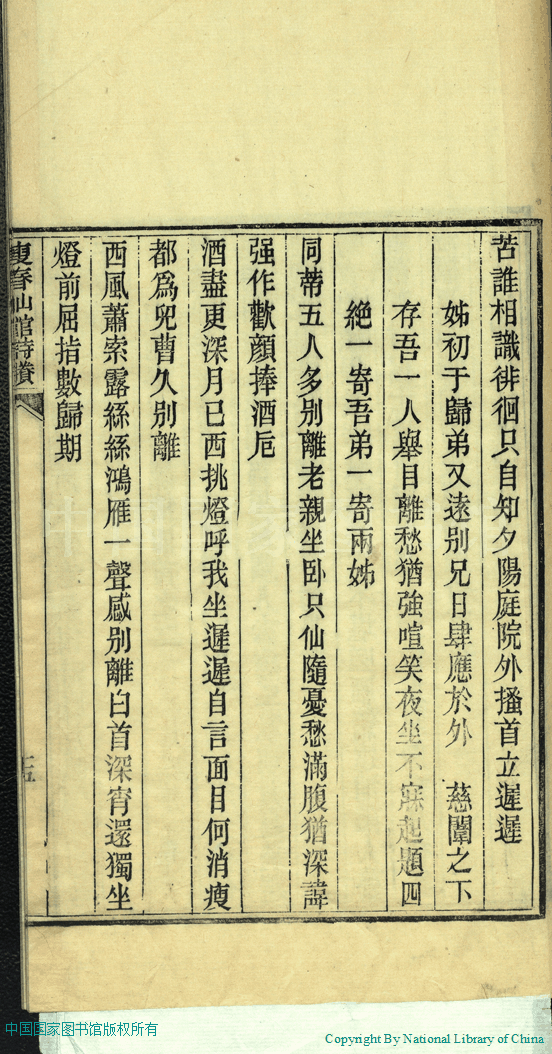 苦誰相識徘徊只自知夕陽庭院外搔首立遲遲
姊初于歸弟又遠别兄日肆應於外 慈闈之下
存吾一人舉目離愁猶強喧笑夜坐不寐起題四
絶一寄吾弟一寄兩姊
同蒂五人多别離老親坐卧只仙隨憂愁滿腹猶深諱
强作歡顔捧酒卮
酒盡更深月已西挑燈呼我坐遲遲自言面目何消瘦
都爲兒曹久别離
西風蕭索露絲絲鴻雁一聲感别離白首深宵還獨坐
燈前屈指數歸期
春仙館詩賸
十五
中国国家图书馆版权所有
Copyright By National Library of China